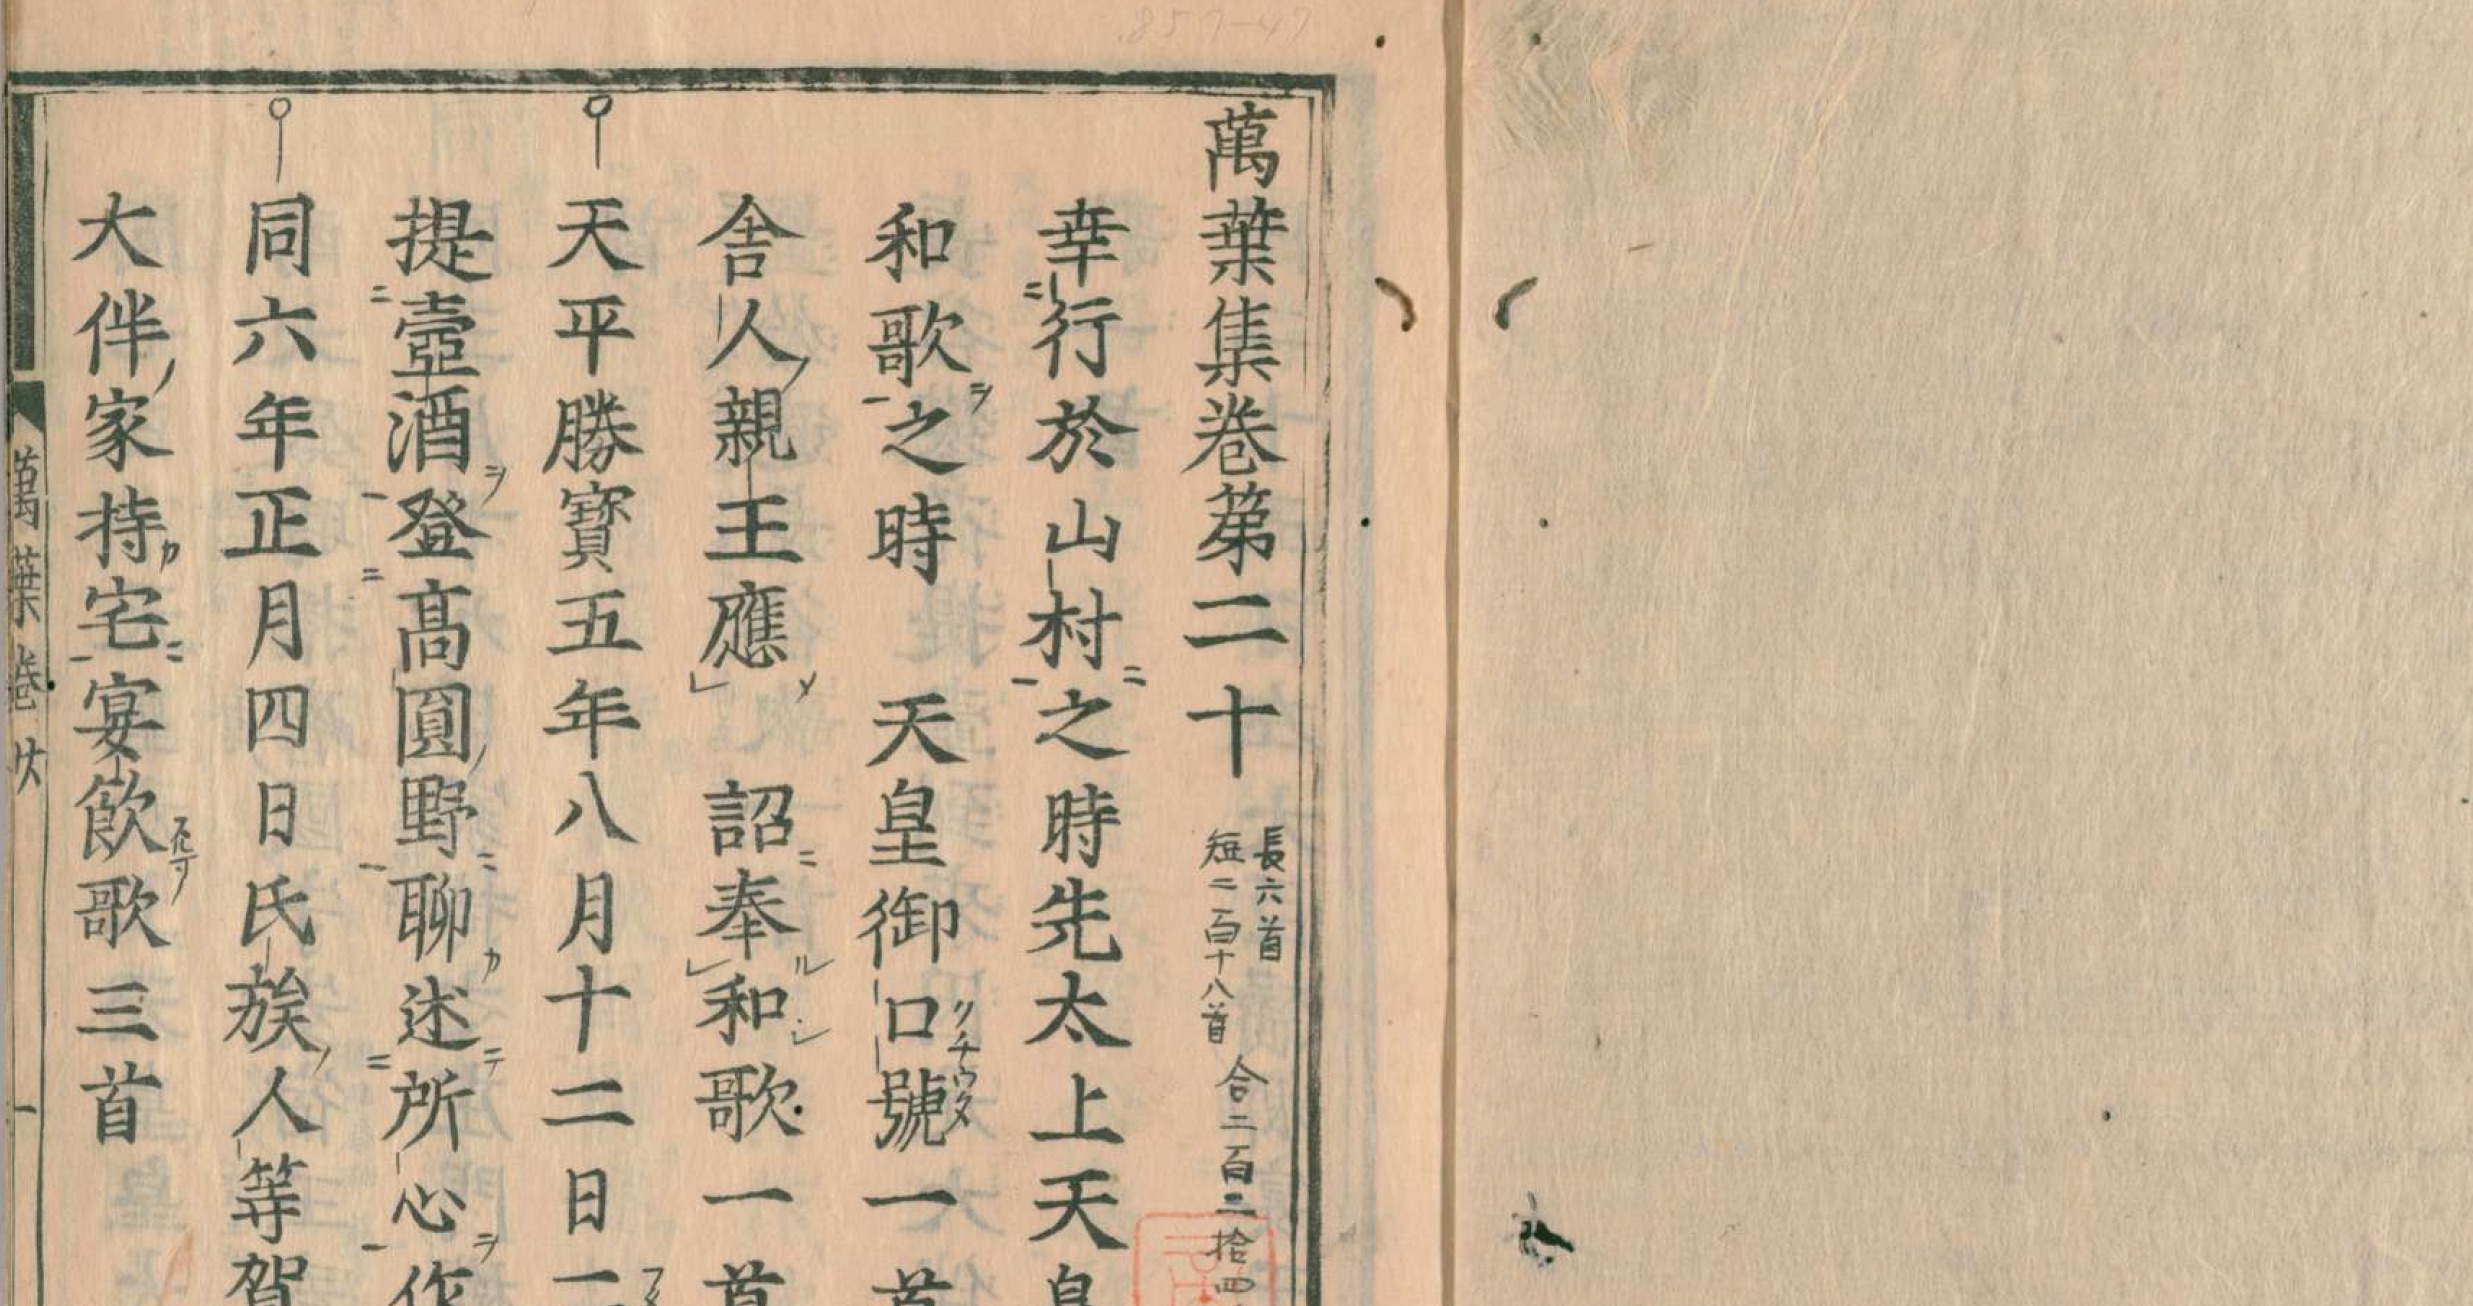 萬葉集巻第二十
長六首
短二百十八首
合二百二拾四
幸行於山村之時先太上天皇
和歌之時 天皇御口號一首
クチウタ
舎人親王應 詔奉和歌一首
天平勝寶五年八月十二日二
提壺酒登高圓野聊述所心作
同六年正月四日氏族人等賀
大伴家持宅宴飲歌三首
萬葉巻廿 一